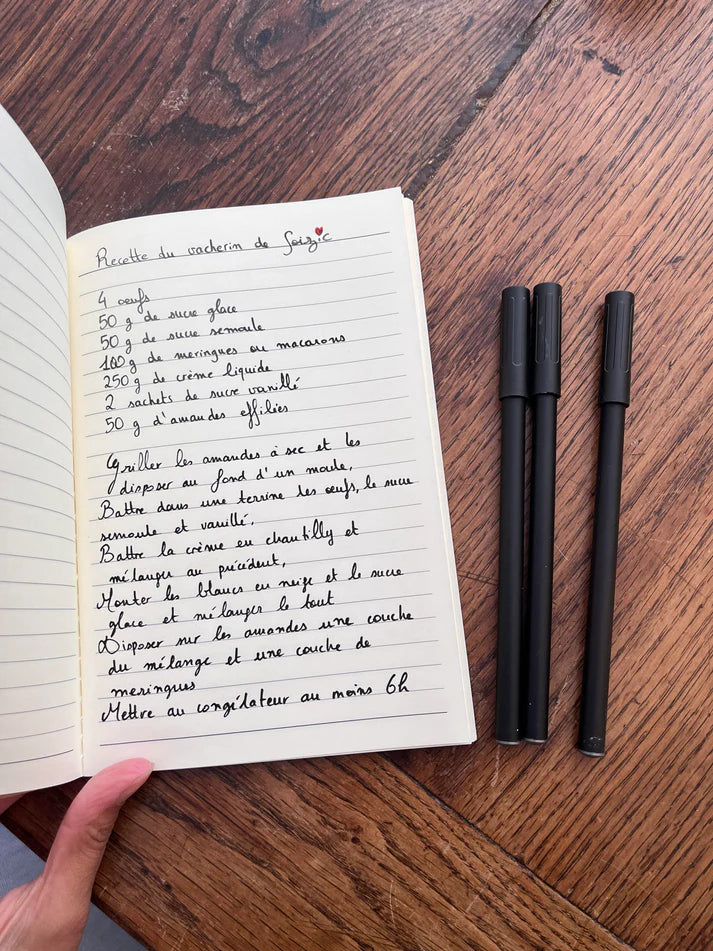 Recette du vacherin de Soizic
4 oeufs
50 g de sucre glace
50 g de sucre semoule
100 g de meringues ou macarons
250 g de crème liquide
2 sachets de sucre vanillé
50 g d'amandes effilées
Griller les amandes à sec et les
disposer au fond d'un moule,
Battre dans une terrine les oeufs, le sucre
semoule et vanillé.
Battre la crème en chantilly et
mélanger au précédent,
Monter les blancs en neige et le sucre
glace et mélanger le tout
Disposer sur les amandes une couche
du mélange et une couche de
meringues
Mettre au congélateur au moins 6h